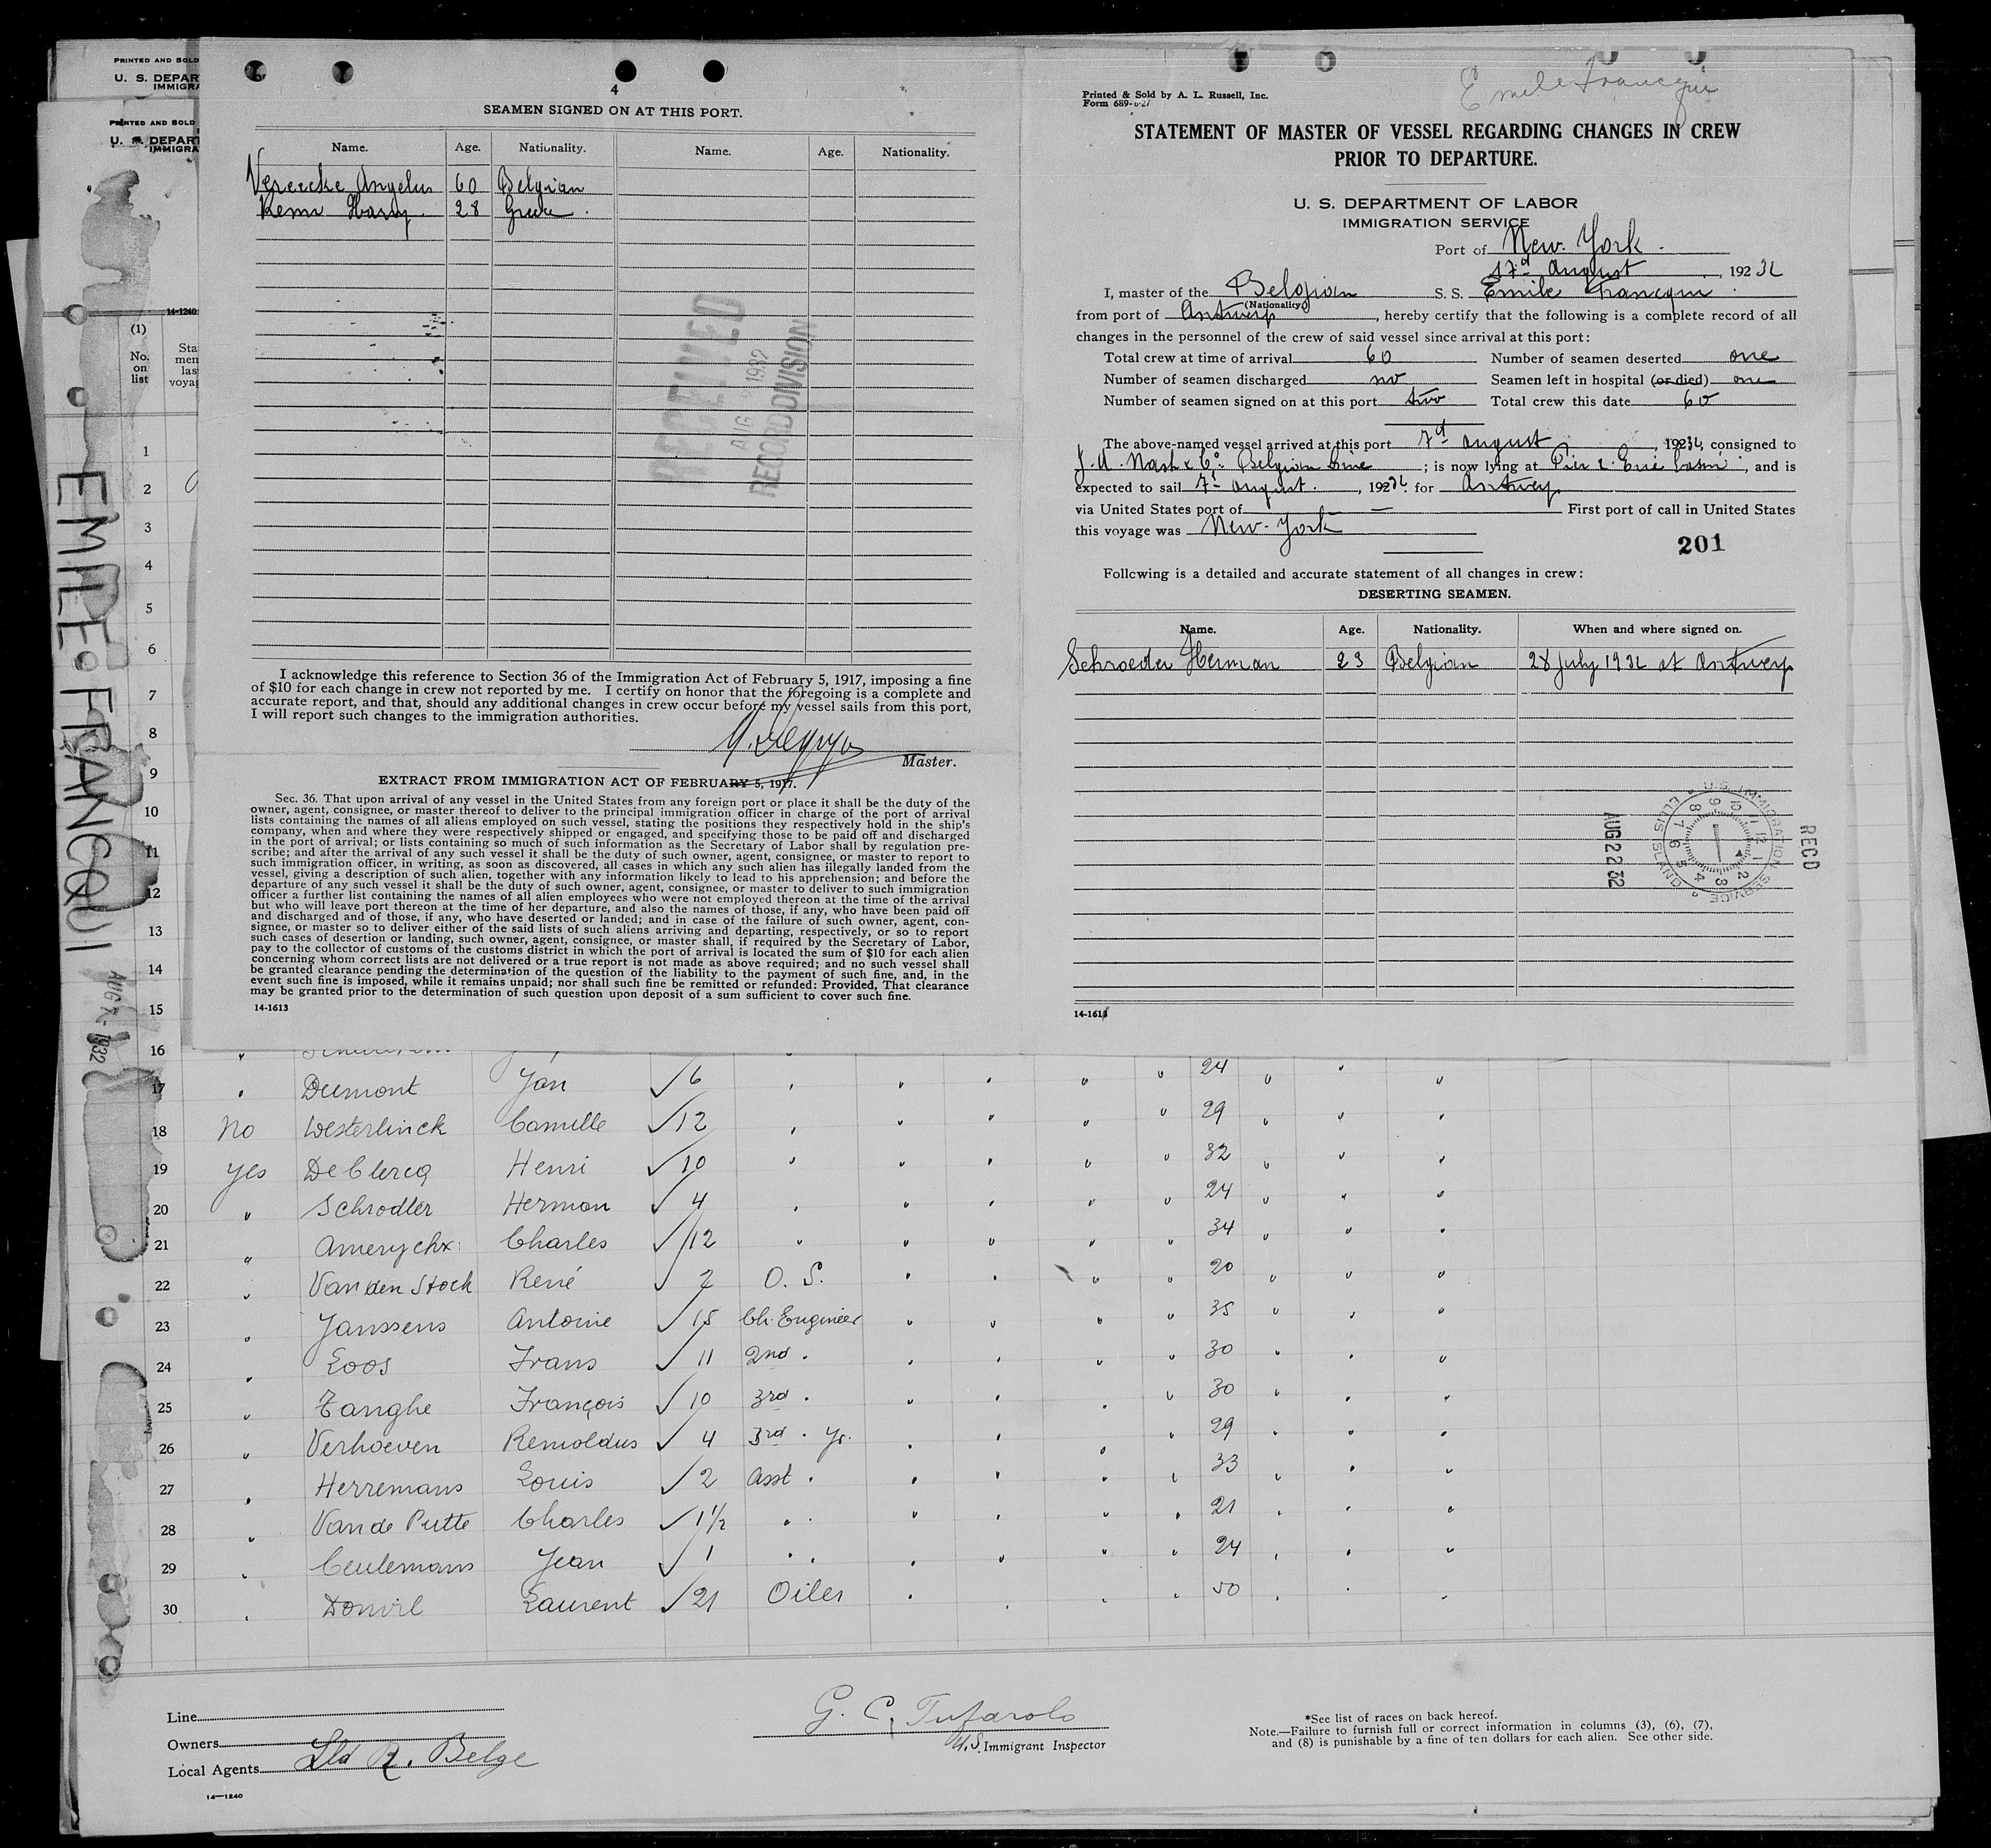 PRINTED AND SOLD
U. S. DEPAR
IMMIGRA
PRINTED AND SOLD
U. S. DEPART
IMMIGRA
14-1240
(1)
No. on list
EMILE FRANCQUI
AUG 7- 1932
4
SEAMEN SIGNED ON AT THIS PORT.
Name. Age. Nationality. Name. Age. Nationality.
Vereecke Angelus 60 Belgian
Harry 28 Greece
RECEIVED
AUG 1932
RECORD DIVISION
I acknowledge this reference to Section 36 of the Immigration Act of February 5, 1917, imposing a fine
of $10 for each change in crew not reported by me. I certify on honor that the foregoing is a complete and
accurate report, and that, should any additional changes in crew occur before my vessel sails from this port,
I will report such changes to the immigration authorities.
Master.
EXTRACT FROM IMMIGRATION ACT OF FEBRUARY 5, 1917.
Sec. 36. That upon arrival of any vessel in the United States from any foreign port or place it shall be the duty of the
owner, agent, consignee, or master thereof to deliver to the principal immigration officer in charge of the port of arrival
lists containing the names of all aliens employed on such vessel, stating the positions they respectively hold in the ship's
company, when and where they were respectively shipped or engaged, and specifying those to be paid off and discharged
in the port of arrival; or lists containing so much of such information as the Secretary of Labor shall by regulation pre-
scribe; and after the arrival of any such vessel it shall be the duty of such owner, agent, consignee, or master to report to
such immigration officer, in writing, as soon as discovered, all cases in which any such alien has illegally landed from the
vessel, giving a description of such alien, together with any information likely to lead to his apprehension; and before the
departure of any such vessel it shall be the duty of such owner, agent, consignee, or master to deliver to such immigration
officer a further list containing the names of all alien employees who were not employed thereon at the time of the arrival
but who will leave port thereon at the time of her departure, and also the names of those, if any, who have been paid off
and discharged and of those, if any, who have deserted or landed; and in case of the failure of such owner, agent, con-
signee, or master so to deliver either of the said lists of such aliens arriving and departing, respectively, or so to report
such cases of desertion or landing, such owner, agent, consignee, or master shall, if required by the Secretary of Labor,
pay to the collector of customs of the customs district in which the port of arrival is located the sum of $10 for each alien
concerning whom correct lists are not delivered or a true report is not made as above required; and no such vessel shall
be granted clearance pending the determination of the question of the liability to the payment of such fine, and, in the
event such fine is imposed, while it remains unpaid; nor shall such fine be remitted or refunded: Provided, That clearance
may be granted prior to the determination of such question upon deposit of a sum sufficient to cover such fine.
14-1613
Emile Francqui
Printed & Sold by A. L. Russell, Inc.
Form 689-6-27
STATEMENT OF MASTER OF VESSEL REGARDING CHANGES IN CREW
PRIOR TO DEPARTURE.
U. S. DEPARTMENT OF LABOR
IMMIGRATION SERVICE
Port of New-York.
17d August, 192 32
I, master of the Belgian S. S. Emile Francqui
(Nationality)
from port of Antwerp, hereby certify that the following is a complete record of all
changes in the personnel of the crew of said vessel since arrival at this port:
Total crew at time of arrival 60 Number of seamen deserted one
Number of seamen discharged no Seamen left in hospital (or died) one
Number of seamen signed on at this port two Total crew this date 60
The above-named vessel arrived at this port 7d August, 19232, consigned to
Nash & Co. Belgian Line; is now lying at Pier 2. Erie Basin, and is
expected to sail 7d August., 19232 for Antwerp
via United States port of — First port of call in United States
this voyage was New-York
201
Following is a detailed and accurate statement of all changes in crew:
DESERTING SEAMEN.
Name. Age. Nationality. When and where signed on.
Schroeder Herman 23 Belgian 28 July 1932 at Antwerp
U.S. IMMIGRATION SERVICE ELLIS ISLAND
RECD
AUG 22 32
14-1613
1
2
3
4
5
6
7
8
9
10
11
12
13
14
15
16 "
17 " Dumont Jan √ 6 " " " " " 24 " " "
18 No Westerlinck Camille √ 12 " " " " " 29 " " "
19 Yes De Clercq Henri √ 10 " " " " " 32 " " "
20 " Schrodter Herman √ 4 " " " " " 24 " " "
21 " Amerychx Charles √ 12 " " " " " 34 " " "
22 " Van den Stock René √ 2 O. S. " " " " 20 " " "
23 " Janssens Antoine √ 15 Ch. Engineer " " " " 35 " " "
24 " Loos Frans √ 11 2nd " " " " " 30 " " "
25 " Tanghe François √ 10 3rd " " " " " 30 " " "
26 " Verhoeven Remoldus √ 4 3rd " Jr. " " " " 29 " " "
27 " Herremans Louis √ 2 Asst " " " " " 33 " " "
28 " Van de Putte Charles √ 1½ " " " " " " 21 " " "
29 " Ceulemans Jean √ 1 " " " " " " 24 " " "
30 " Donvil Laurent √ 21 Oiler " " " " 50 " " "
Line
Owners
Local Agents Lld R. Belge
14—1240
G. C. Tufarolo
U.S. Immigrant Inspector
*See list of races on back hereof.
Note.—Failure to furnish full or correct information in columns (3), (6), (7),
and (8) is punishable by a fine of ten dollars for each alien. See other side.